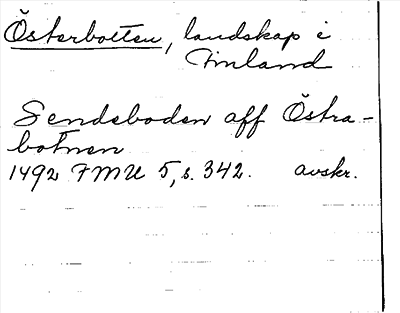 Österbotten, landskap i
Finland
Sendeboden aff Östra-
botnen
1492 FMU 5, s. 342. avskr.